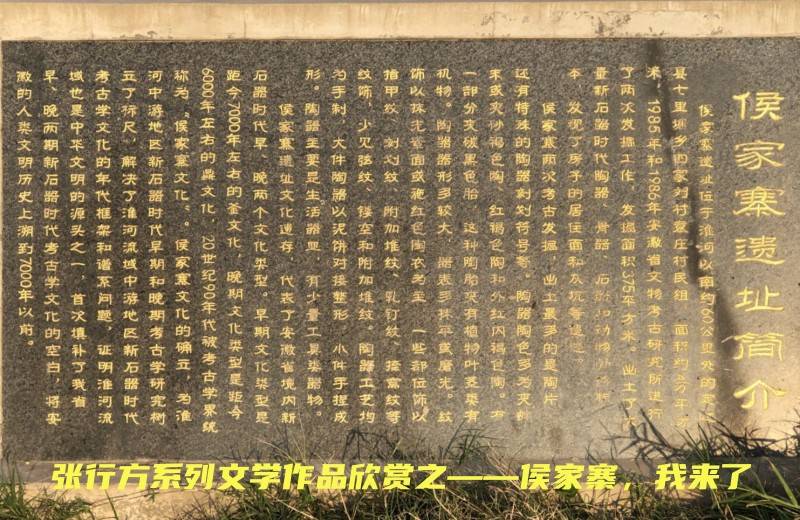 侯家寨遗址简介
侯家寨遗址位于淮河以南约60公里处的定远
县七里塘乡 袁庄村民组，面积约3万平方
米。1985年和1986年安徽省文物考古研究所进行
了两次发掘工作，发掘面积375平方米。出土了大
量新石器时代陶器、骨器、石器和动物
本，发现了房子的居住面和灰坑等遗迹。
侯家寨两次考古发掘，出土最多的是陶片
还有特殊的陶器刻划符号等。陶器陶色多为夹砂
末或夹砂褐色陶、红褐色陶和外红内褐色陶。有
一部分夹碳黑色胎，这种陶胎夹有植物叶茎类有
机物。陶器器形多较大，器表多抹平或磨光。纹
饰以抹光素面或施红色陶衣为主，一些部位饰以
指甲纹、刻划纹、附加堆纹、乳钉纹、 窝纹等
纹饰，少见弦纹、镂空和附加堆纹。陶器工艺均
为手制，大件陶器以泥饼对接整形，小件手捏成
形。陶器主要是生活器皿，有少量工具类器物。
侯家寨遗址文化遗存，代表了安徽省境内新
石器时代早、晚两个文化类型。早期文化类型是
距今7000年左右的釜文化，晚期文化类型是距今
6000年左右的鼎文化，20世纪90年代被考古学界统
称为“侯家寨文化”。侯家寨文化的确立，为淮
河中游地区新石器时代早期和晚期考古学研究树
立了标尺，解决了淮河流域中游地区新石器时代
考古学文化的年代框架和谱系问题，证明淮河流
域也是中华文明的源头之一，首次填补了我省
早、晚两期新石器时代考古学文化的空白，将安
徽的人类文明历史上溯到7000年以前。
张行方系列文学作品欣赏之——侯家寨，我来了